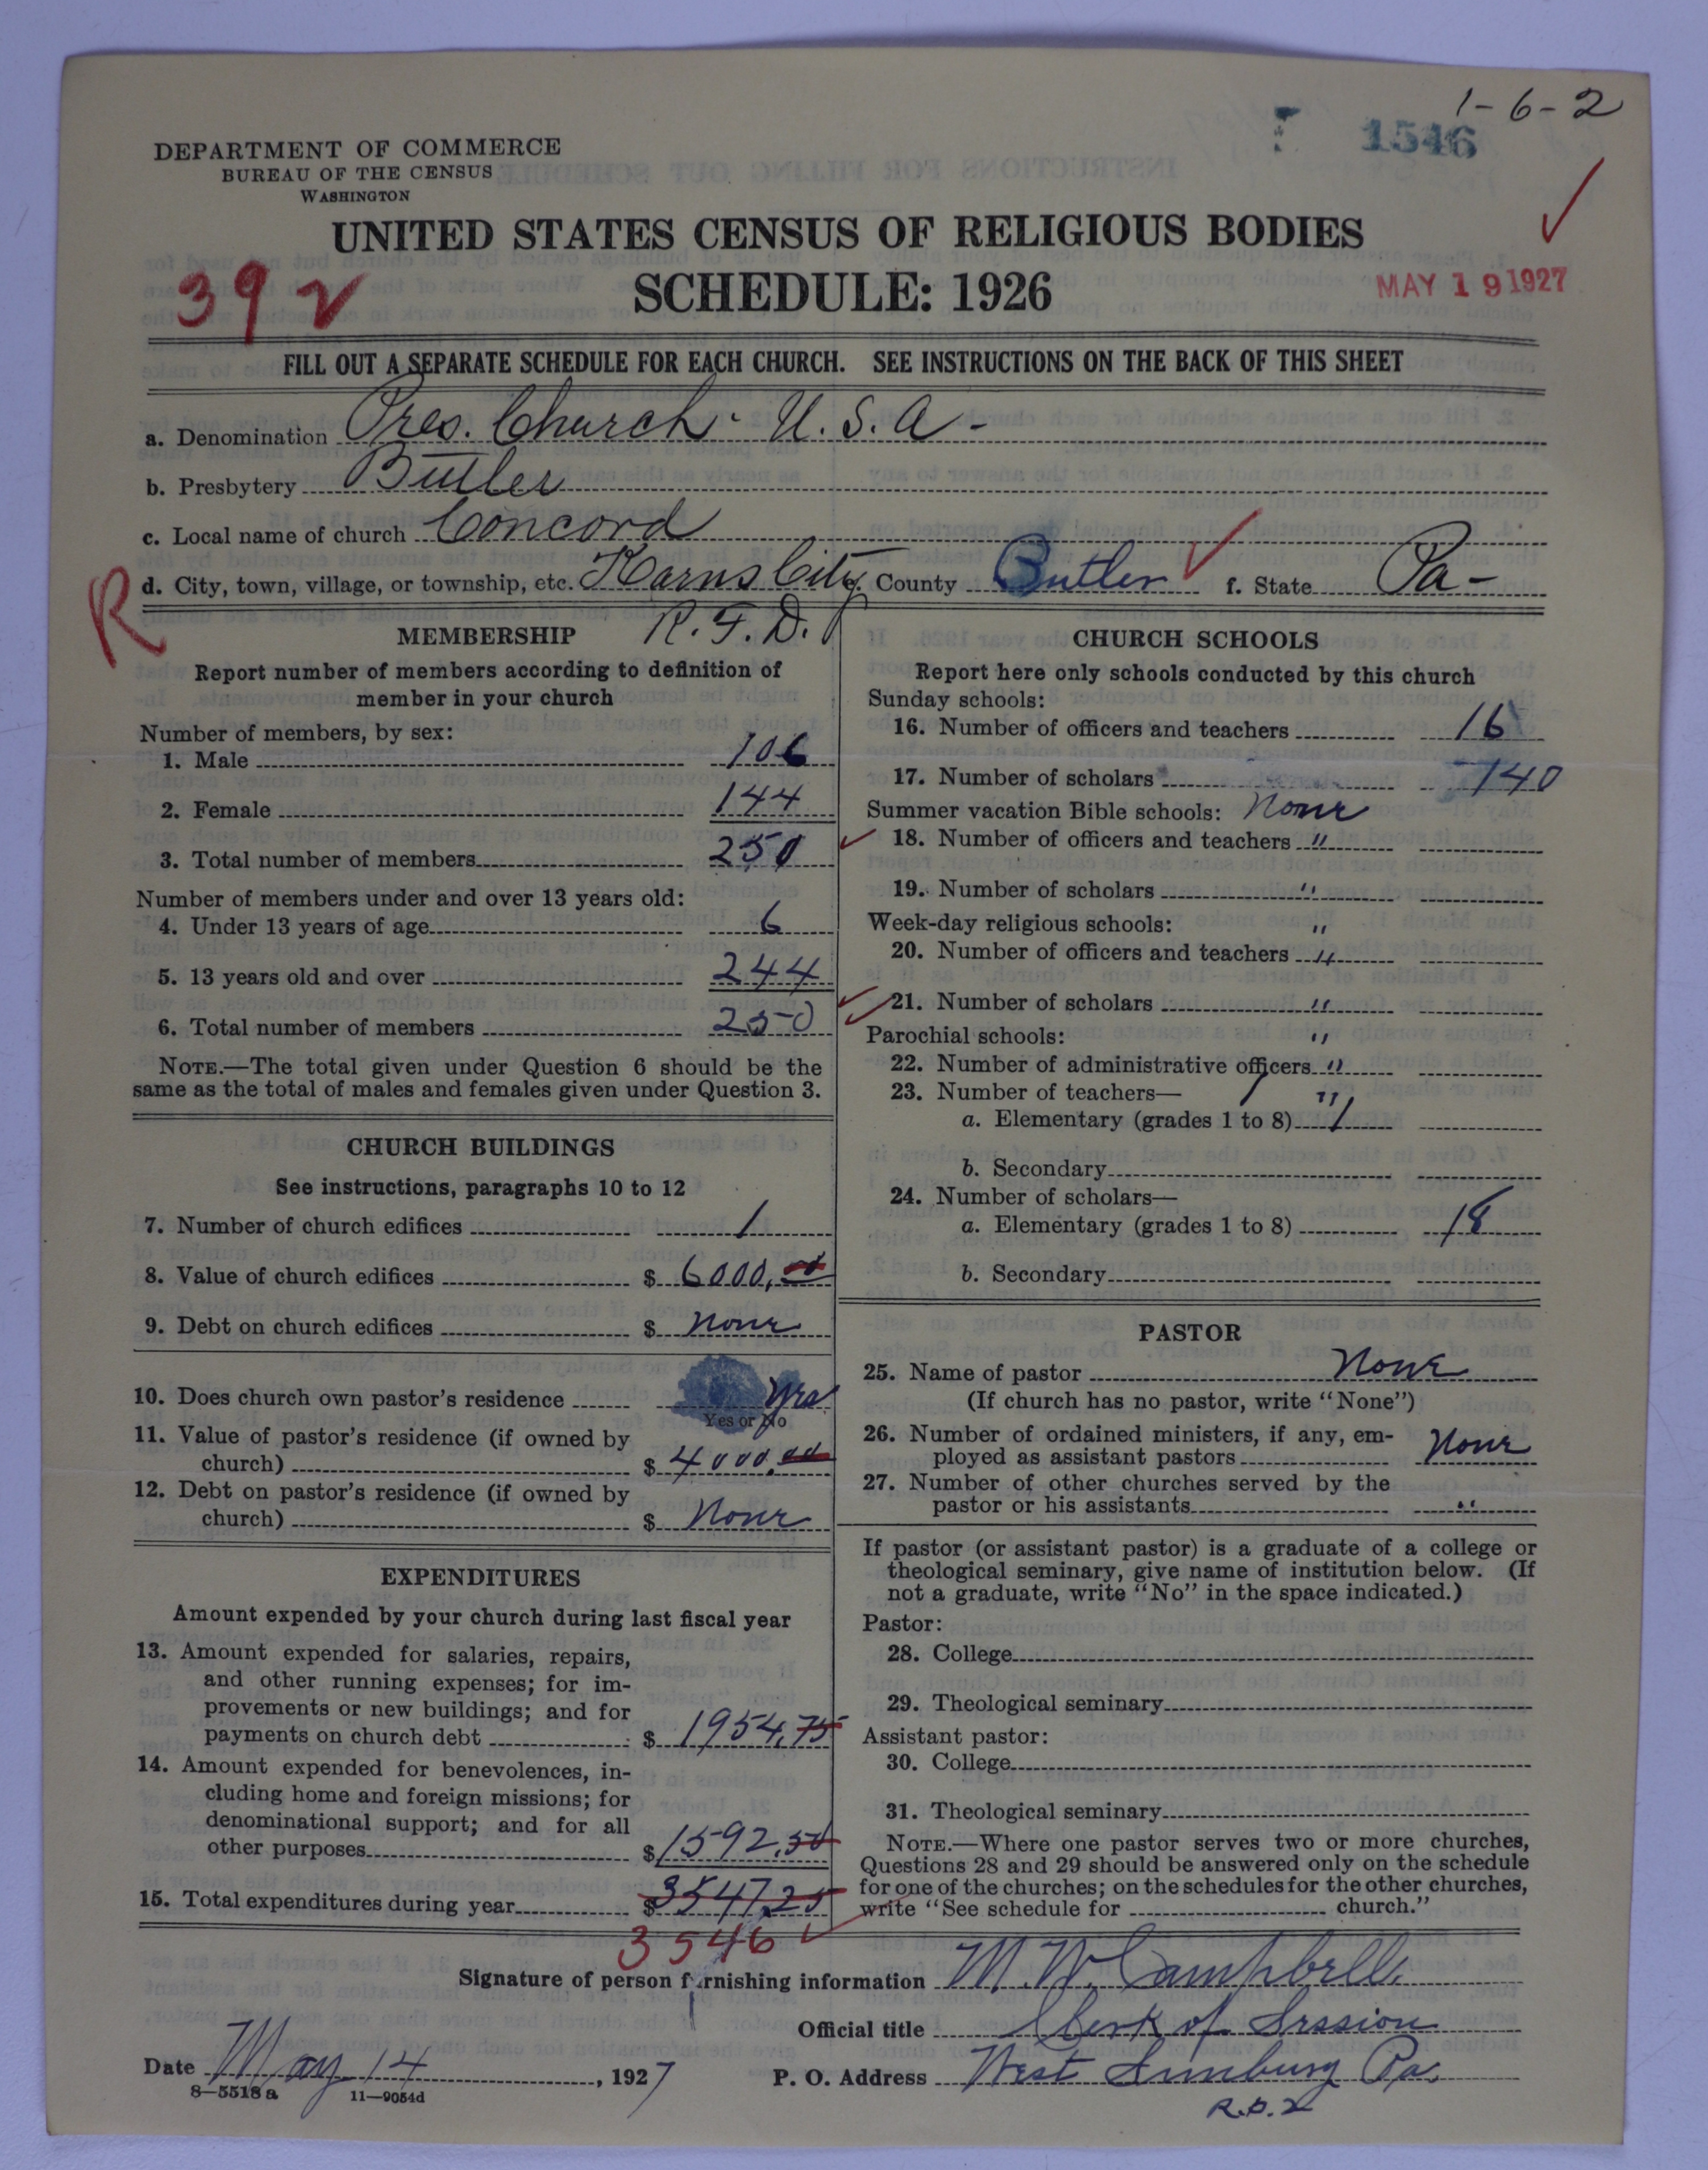 1-6-2
1546
DEPARTMENT OF COMMERCE
BUREAU OF THE CENSUS
WASHINGTON
UNITED STATES CENSUS OF RELIGIOUS BODIES
SCHEDULE: 1926
39
MAY 19 1927
FILL OUT A SEPARATE SCHEDULE FOR EACH CHURCH. SEE INSTRUCTIONS ON THE BACK OF THIS SHEET
a. Denomination Pres. Church. U.S.A-
b. Presbytery Butler
c. Local name of church Concord
d. City, town, village, or township, etc. Karns City e. County Butler f. State Pa-
R
R.F.D.
MEMBERSHIP
Report number of members according to definition of
member in your church
Number of members, by sex:
1. Male 106
2. Female 144
3. Total number of members 250
Number of members under and over 13 years old:
4. Under 13 years of age 6
5. 13 years old and over 244
6. Total number of members 250
NOTE.—The total given under Question 6 should be the
same as the total of males and females given under Question 3.
CHURCH BUILDINGS
See instructions, paragraphs 10 to 12
7. Number of church edifices 1
8. Value of church edifices $ 6000.00
9. Debt on church edifices $ None
10. Does church own pastor's residence Yes
Yes or No
11. Value of pastor's residence (if owned by
church) $ 4000.00
12. Debt on pastor's residence (if owned by
church) $ None
EXPENDITURES
Amount expended by your church during last fiscal year
13. Amount expended for salaries, repairs,
and other running expenses; for im-
provements or new buildings; and for
payments on church debt $ 1954.75
14. Amount expended for benevolences, in-
cluding home and foreign missions; for
denominational support; and for all
other purposes $ 1592.50
15. Total expenditures during year $ 3547.25
3546
CHURCH SCHOOLS
Report here only schools conducted by this church
Sunday schools:
16. Number of officers and teachers 16
17. Number of scholars 140
Summer vacation Bible schools: None
18. Number of officers and teachers "
19. Number of scholars "
Week-day religious schools: "
20. Number of officers and teachers "
21. Number of scholars "
Parochial schools: "
22. Number of administrative officers "
23. Number of teachers— "
a. Elementary (grades 1 to 8) 1
b. Secondary
24. Number of scholars—
a. Elementary (grades 1 to 8) 18
b. Secondary
PASTOR
25. Name of pastor None
(If church has no pastor, write "None")
26. Number of ordained ministers, if any, em-
ployed as assistant pastors None
27. Number of other churches served by the
pastor or his assistants "
If pastor (or assistant pastor) is a graduate of a college or
theological seminary, give name of institution below. (If
not a graduate, write "No" in the space indicated.)
Pastor:
28. College
29. Theological seminary
Assistant pastor:
30. College
31. Theological seminary
NOTE.—Where one pastor serves two or more churches,
Questions 28 and 29 should be answered only on the schedule
for one of the churches; on the schedules for the other churches,
write "See schedule for church."
Signature of person furnishing information M. W. Campbell
Official title Clerk of Session
Date May 14, 1927 P. O. Address West Sunbury Pa.
8—5518a 11—9054d
R.D.2